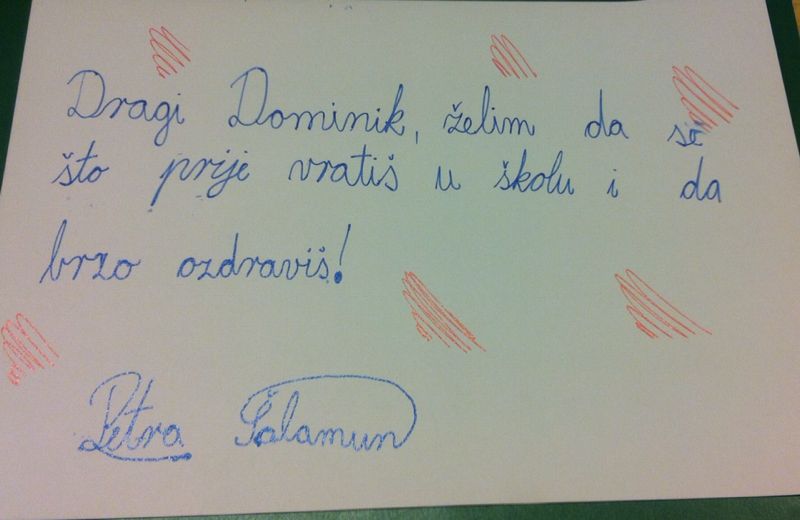 Dragi Dominik, želim da se
što prije vratiš u školu i da
brzo ozdraviš!
Petra Šalamun